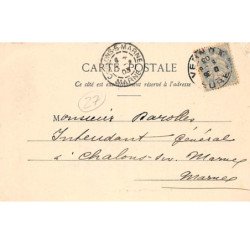 CARTE POSTALE
Ce côté est exclusivement réservé à l'adresse
27
Monsieur Barolles
Intendant Général
à Chalons-sur-Marne
Marne